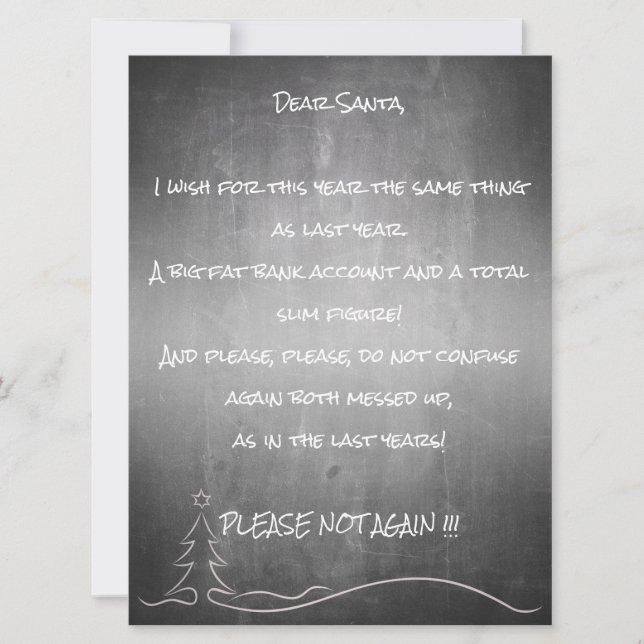 Dear Santa,
I wish for this year the same thing
as last year.
A big fat bank account and a total
slim figure!
And please, please, do not confuse
again both messed up,
as in the last years!
PLEASE NOT AGAIN !!!